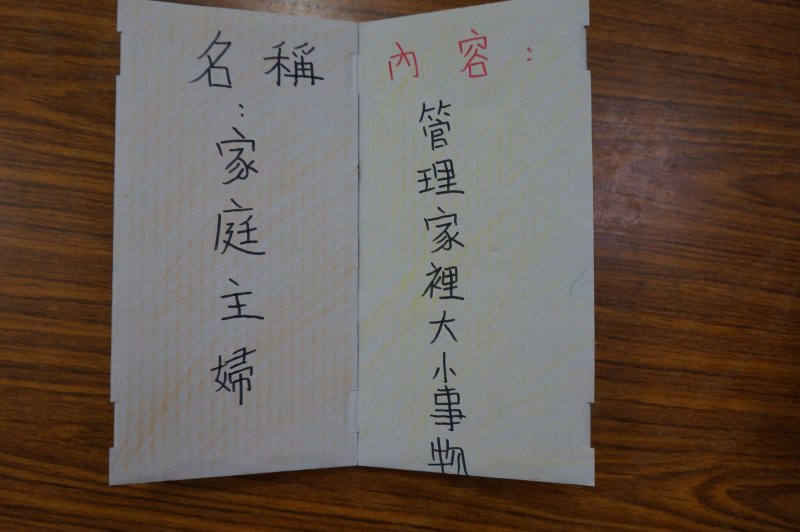 名稱
：家庭主婦
內容：
管理家裡大小事物